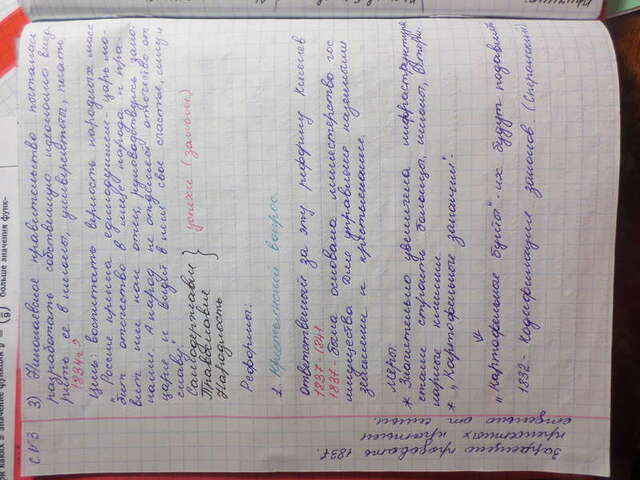 3) Николаевское правительство пыталось
разработать собственную идеологию, внед-
рить её в школы, университеты, печать
1834г.
Цель: воспитать верность народных масс
Россия крепка единодушием - царь лю-
бит отечество в лице народа и пра-
вит им как отец, руководствуясь зако-
нами. А народ не отделяет отечество от
царя и видит в нём своё счастье, силу и
славу"
Самодержавие
Православие
Народность
устои (законы)
Реформы:
1. Крестьянский вопрос.
ответственный за эту реформу Киселев
1837-1841
1837 - было основано министерство гос
имущества Для управления казенными
землями и крестьянами.
Меры:
* Значительно увеличена инфраструктура
стали строить больницы, школы, ветери-
нарные клиники
* "Картофельное запашки".
"Картофельные бунты" - их будут подавлять
1832 - Кодификация законов. (Сперанский)
С №3
Запрещено продавать 1837.
крестьян
отдельно от семьи.
больше значения функ-